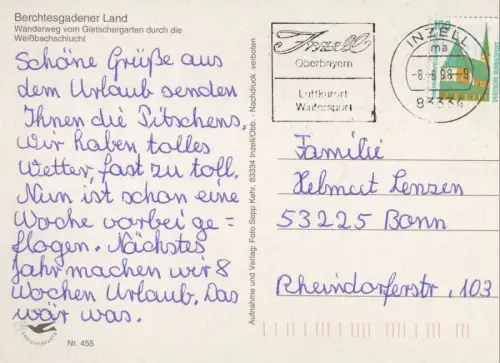 Berchtesgadener Land
Wanderweg vom Gletschergarten durch die
Weißbachschlucht
Schöne Grüße aus
dem Urlaub senden
Ihnen die Pitschens.
Wir haben tolles
Wetter, fast zu toll.
Nun ist schon eine
Woche vorbei ge=
flogen. Nächstes
Jahr machen wir 8
Wochen Urlaub. Das
wär was.
Nr. 455
Aufnahme und Verlag: Foto Sepp Kehr, 83334 Inzell/Obb. - Nachdruck verboten
Inzell
Oberbayern
Luftkurort
Wintersport
INZELL
ma
-8.-6.98.-9
83334
100
DEUTSCHE BUNDESPOST
Familie
Helmut Lenzen
53225 Bonn
Rheindorferstr, 103